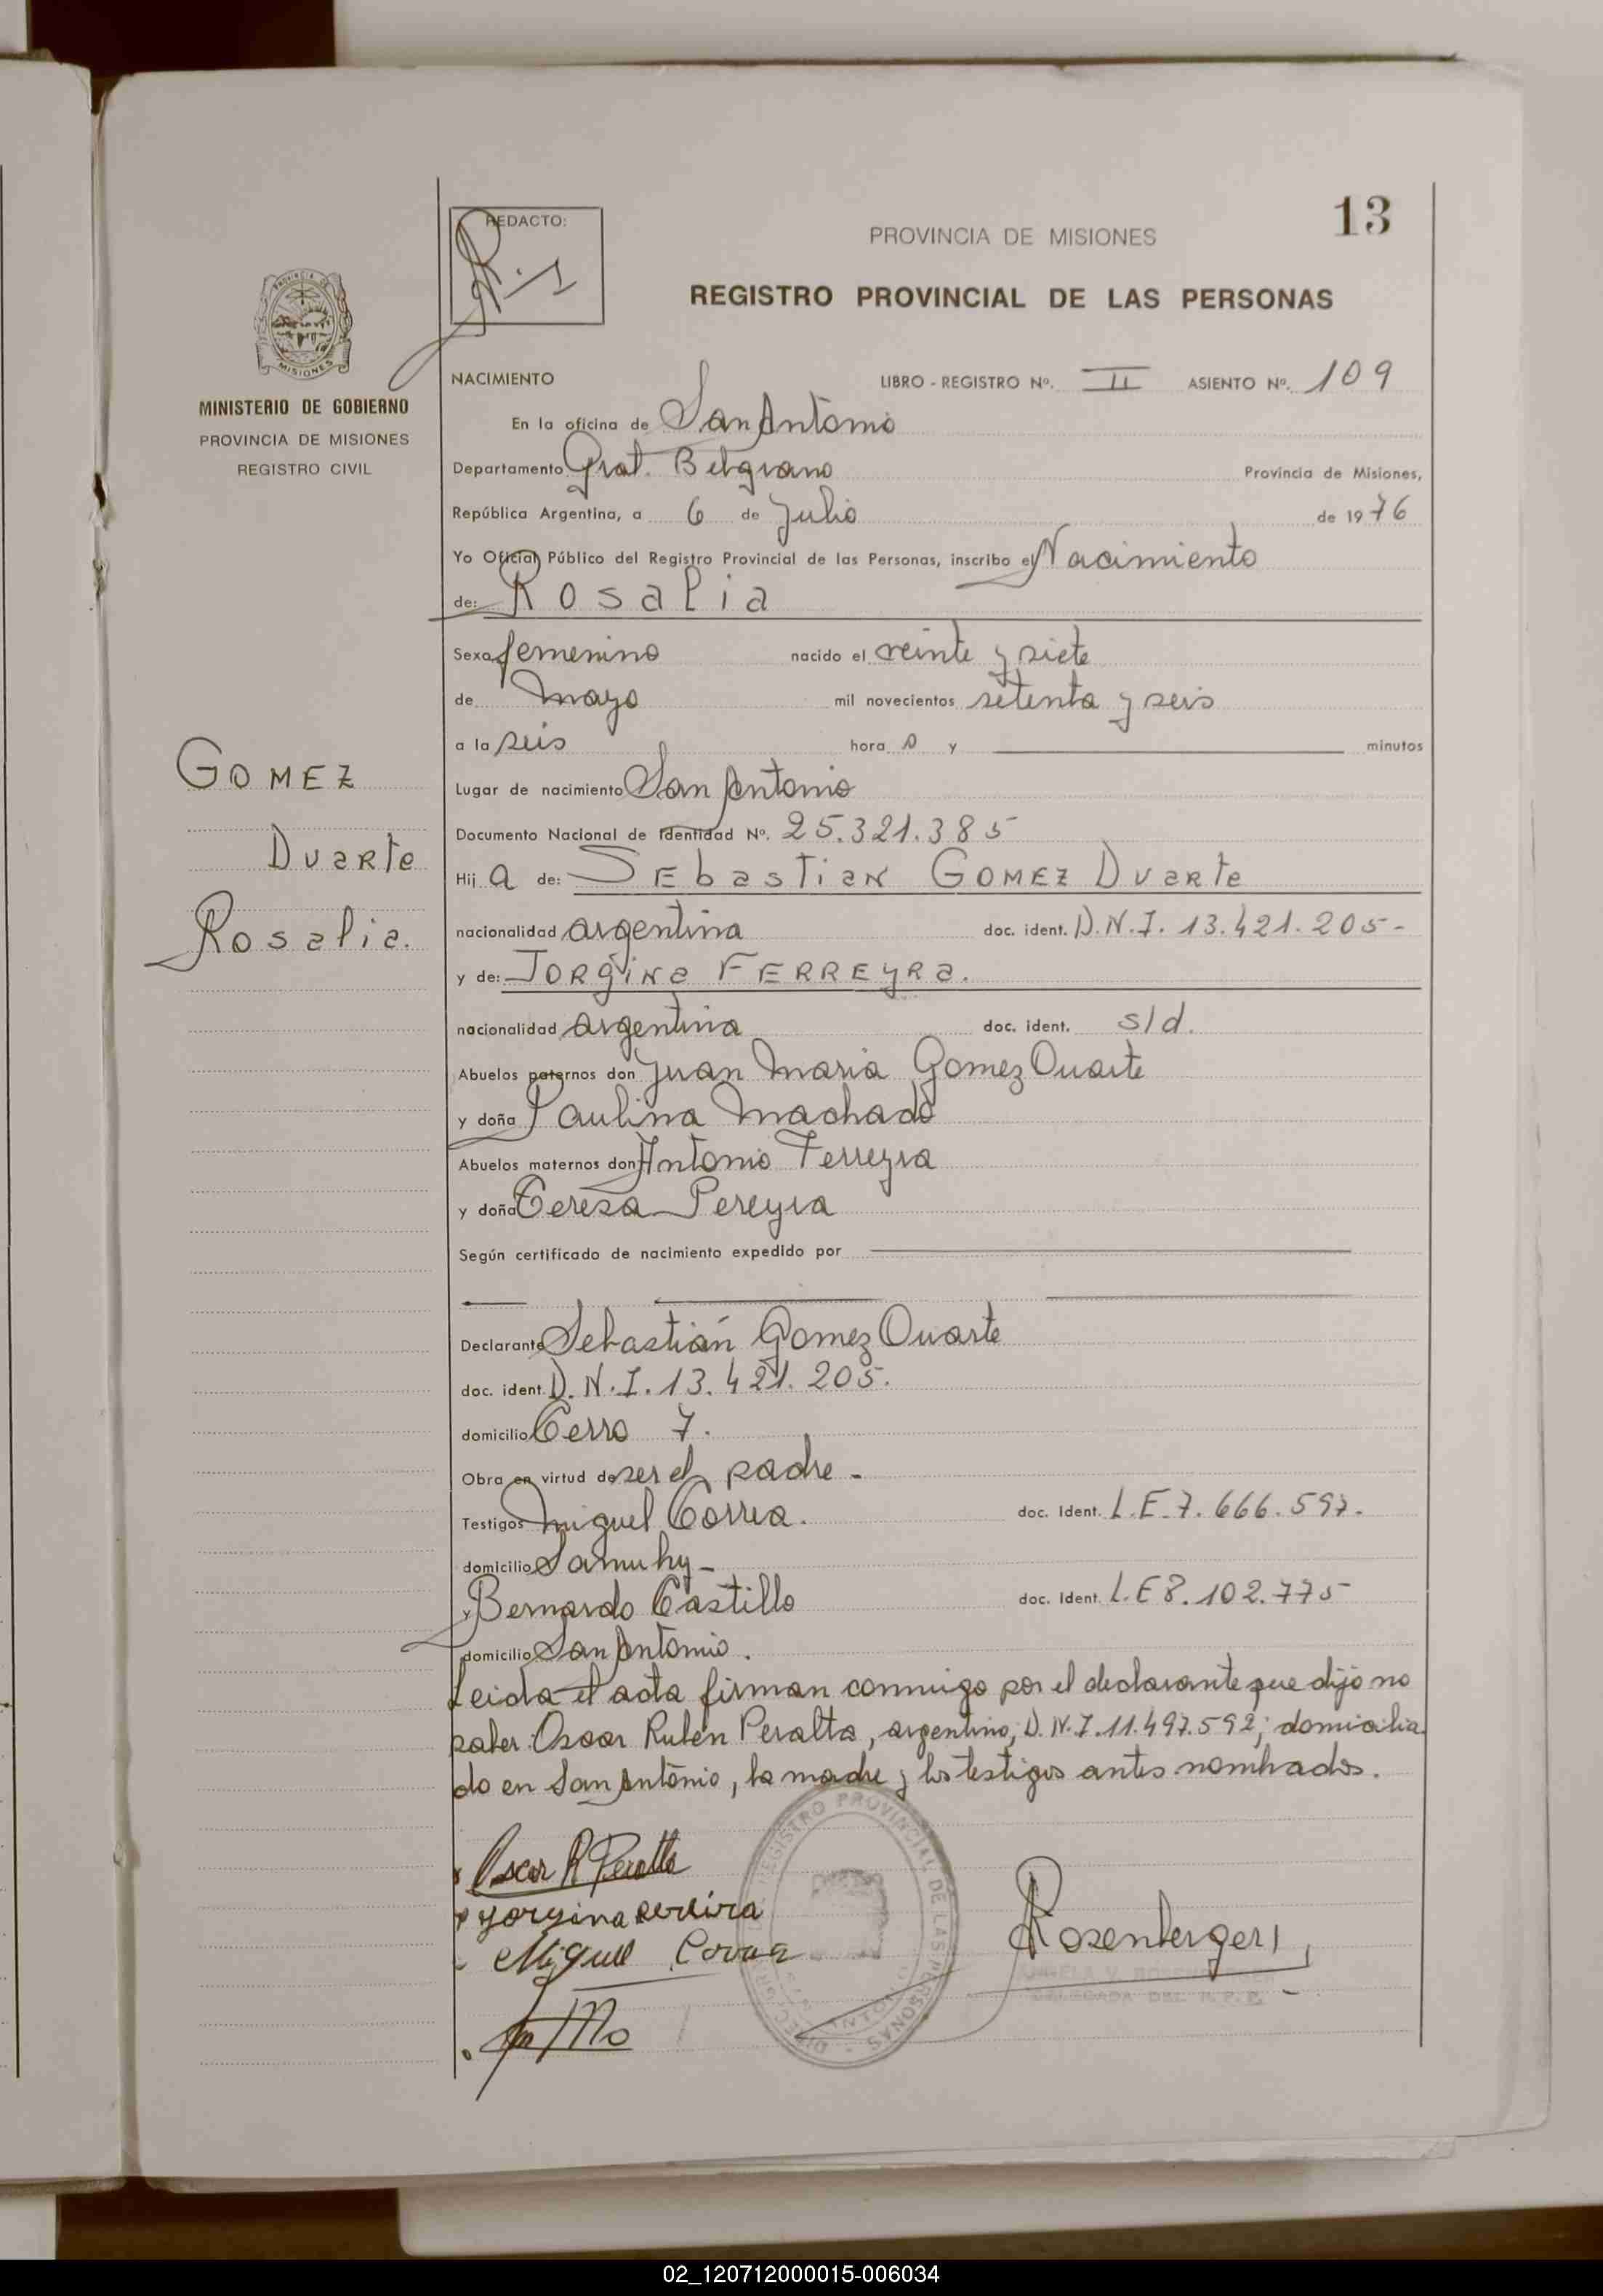 13
REDACTO:
PROVINCIA DE MISIONES
REGISTRO PROVINCIAL DE LAS PERSONAS
PROVINCIA DE
MISIONES
MINISTERIO DE GOBIERNO
PROVINCIA DE MISIONES
REGISTRO CIVIL
GOMEZ
Duarte
Rosalia.
NACIMIENTO LIBRO - REGISTRO Nº. II ASIENTO Nº. 109
En la oficina de San Antonio
Departamento Gral. Belgrano Provincia de Misiones,
República Argentina, a 6 de Julio de 1976
Yo Oficial Público del Registro Provincial de las Personas, inscribo el Nacimiento
de: Rosalia
Sexo femenino nacido el veinte y siete
de mayo mil novecientos setenta y seis
a la seis hora s y minutos
Lugar de nacimiento San Antonio
Documento Nacional de Identidad Nº. 25.321.385
Hij a de: Sebastian Gomez Duarte
nacionalidad argentina doc. ident. D.N.I. 13.421.205-
y de: Jorgina Ferreyra.
nacionalidad argentina doc. ident. s/d.
Abuelos paternos don Juan Maria Gomez Duarte
y doña Paulina Machado
Abuelos maternos don Antonio Ferreyra
y doña Teresa Pereyra
Según certificado de nacimiento expedido por
Declarante Sebastián Gomez Duarte
doc. ident. D.N.I. 13.421.205.
domicilio Cerro 7.
Obra en virtud de ser el padre -
Testigos Miguel Correa. doc. Ident. L.E. 7.666.597.
domicilio Samuhy -
y Bernardo Castillo doc. Ident. L.E 8.102.775
domicilio San Antonio.
Leida el acta firman conmigo por el declarante que dijo no
saber Oscar Rubén Peralta, argentino, D.N.I. 11.497.592; domicilia
do en San Antonio, la madre y los testigos antes nombrados.
Oscar R Peralta
yorgina pereira
Miguel Correa
Rosenberger
ANGELA V. ROSENBERGER
DELEGADA DEL R.P.P.
REGISTRO PROVINCIAL DE LAS PERSONAS
02_120712000015-006034